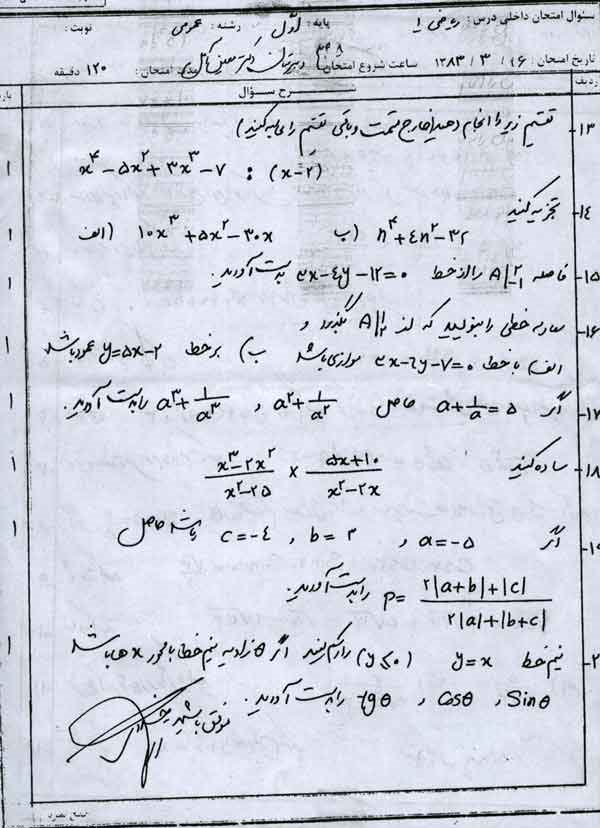 سئوال امتحان داخلی درس: ریاضی ۱ پایه: اوّل رشته: عمومی نوبت:
تاریخ امتحان: ۱۳۸۳/۳/۱۶ ساعت شروع امتحان دبیرستان دکتر معین مدت امتحان: ۱۲۰ دقیقه
ردیف شرح سئوال
۱۳- تقسیم زیر را انجام دهید (خارج قسمت و باقی تقسیم را
x⁴ - ۵x² + ۳x³ - ۷ : (x - ۲) ۱
۱۴- تجزیه کنید
الف) ۱۰x³ + ۵x² - ۳۰x ب) n⁴ + ۴n² - ۳۲ ۱
۱۵- فاصله A|۲ -۱ را از خط ۳x - ۴y - ۱۲ = ۰ بدست آورید. ۱
۱۶- معادله خطی را بنویسید که از A| بگذرد و
الف) با خط ۳x - ۲y - ۷ = ۰ موازی باشد ب) بر خط y = ۵x - ۲ عمود باشد ۱
۱۷- اگر a + 1/a = ۵ حاصل a² + 1/a² ، a³ + 1/a³ را بدست آورید. ۱
۱۸- ساده کنید (x³ - ۲x²)/(x² - ۲۵) × (۵x + ۱۰)/(x² - ۲x) ۱
۱۹- اگر a = -۵ ، b = ۳ ، c = -۴ باشد حاصل ۱
P = (۲|a+b| + |c|)/(۲|a| + |b+c|) را بدست آورید.
۲- نیم خط y = x (y ⩽ ۰) را رسم کنید اگر θ زاویه نیم خط با محور x ها باشد ۱
Sinθ ، Cosθ ، tgθ را بدست آورید.
موفق باشید